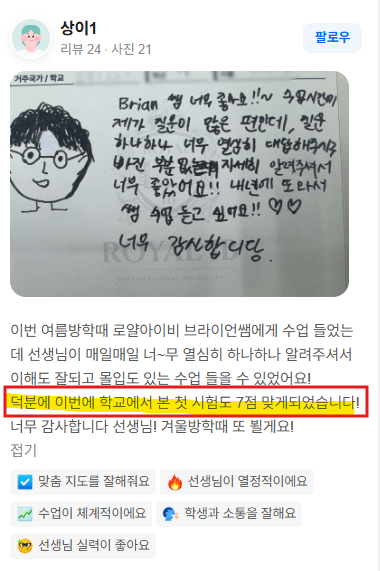 상이1
리뷰 24 · 사진 21
팔로우
거주국가 / 학교
Brian 쌤 너무 좋아요!!~ 수업시간에
제가 질문이 많은 편인데, 질문
하나하나 너무 열심히 대답해주시구
빠진 부분 없는 자세히 알려주셔서
너무 좋았어요!! 내년에 또 와서
쌤 수업 듣고 싶어요!! ♡♡
너무 감사합니당.
ROYAL IB
이번 여름방학때 로얄아이비 브라이언쌤에게 수업 들었는
데 선생님이 매일매일 너~무 열심히 하나하나 알려주셔서
이해도 잘되고 몰입도 있는 수업 들을 수 있었어요!
덕분에 이번에 학교에서 본 첫 시험도 7점 맞게되었습니다!
너무 감사합니다 선생님! 겨울방학때 또 뵐게요!
접기
맞춤 지도를 잘해줘요
선생님이 열정적이에요
수업이 체계적이에요
학생과 소통을 잘해요
선생님 실력이 좋아요